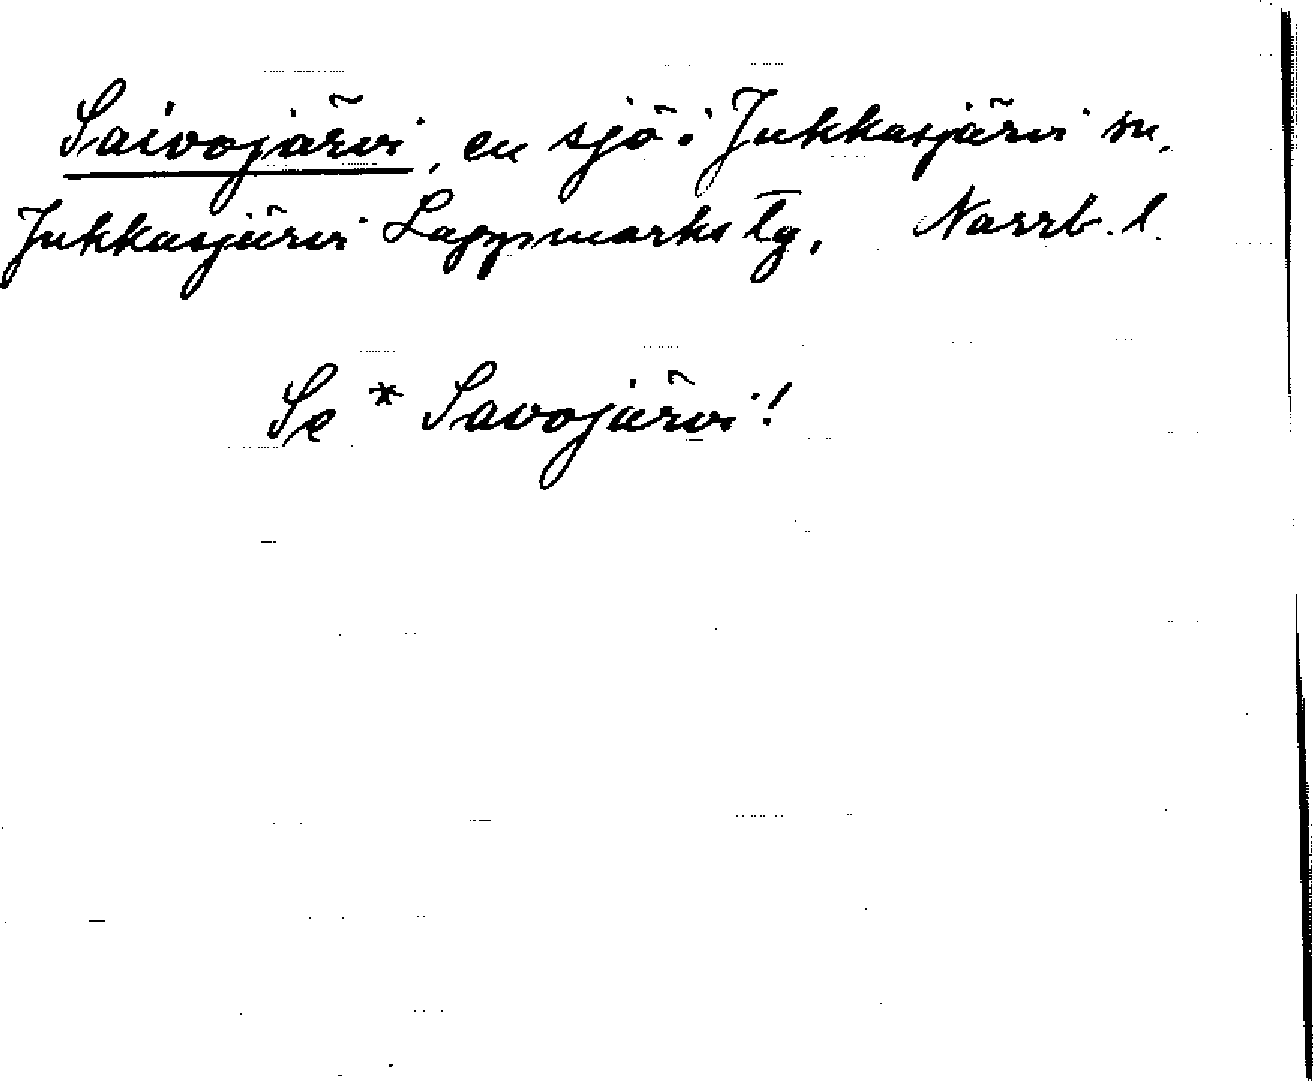 Saivojärvi, en sjö i Jukkasjärvi sn,
Jukkasjärvi Lappmarks tg, Norrb. l.
Se * Savojärvi!